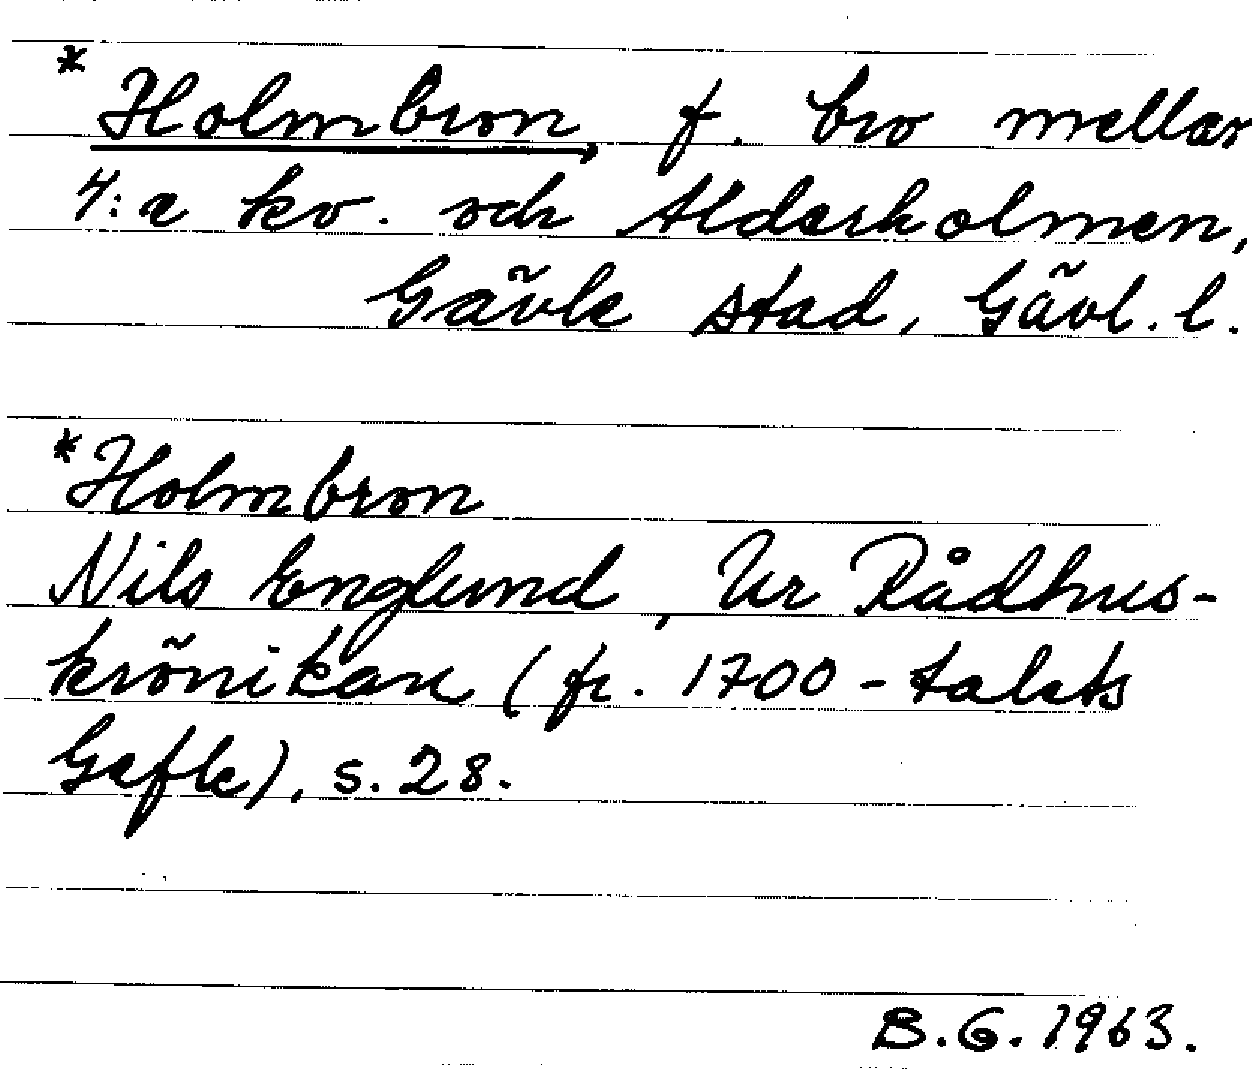 *Holmbron, f. bro mellan
4:e kv. och Alderholmen,
Gävle stad, Gävl. l.
*Holmbron
Nils Englund, Ur Rådhus-
krönikan (fr. 1700-talets
Gefle), s. 28.
B.G. 1963.